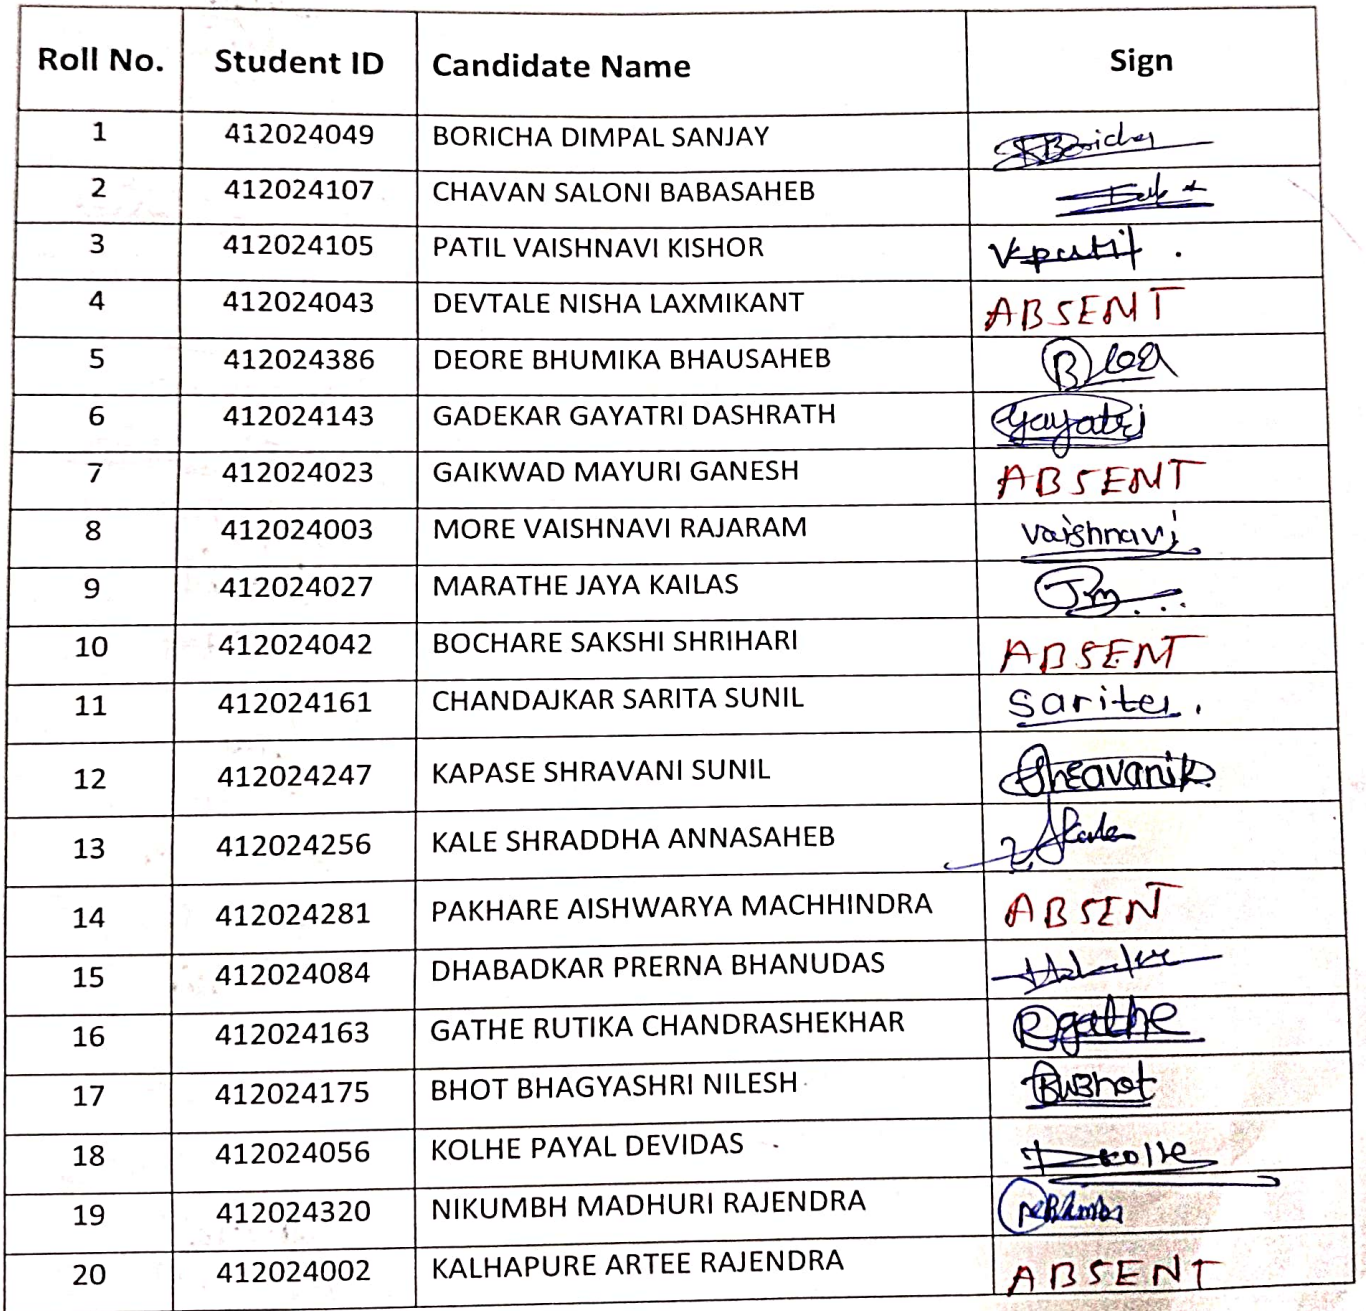 Roll No. Student ID Candidate Name Sign
1 412024049 BORICHA DIMPAL SANJAY Boricha
2 412024107 CHAVAN SALONI BABASAHEB
3 412024105 PATIL VAISHNAVI KISHOR V patil .
4 412024043 DEVTALE NISHA LAXMIKANT ABSENT
5 412024386 DEORE BHUMIKA BHAUSAHEB
6 412024143 GADEKAR GAYATRI DASHRATH Gayatri
7 412024023 GAIKWAD MAYURI GANESH ABSENT
8 412024003 MORE VAISHNAVI RAJARAM Vaishnavi
9 412024027 MARATHE JAYA KAILAS
10 412024042 BOCHARE SAKSHI SHRIHARI ABSENT
11 412024161 CHANDAJKAR SARITA SUNIL Sarita.
12 412024247 KAPASE SHRAVANI SUNIL ShravaniK
13 412024256 KALE SHRADDHA ANNASAHEB
14 412024281 PAKHARE AISHWARYA MACHHINDRA ABSEN
15 412024084 DHABADKAR PRERNA BHANUDAS
16 412024163 GATHE RUTIKA CHANDRASHEKHAR Rgathe
17 412024175 BHOT BHAGYASHRI NILESH BNBhot
18 412024056 KOLHE PAYAL DEVIDAS
19 412024320 NIKUMBH MADHURI RAJENDRA
20 412024002 KALHAPURE ARTEE RAJENDRA ABSENT